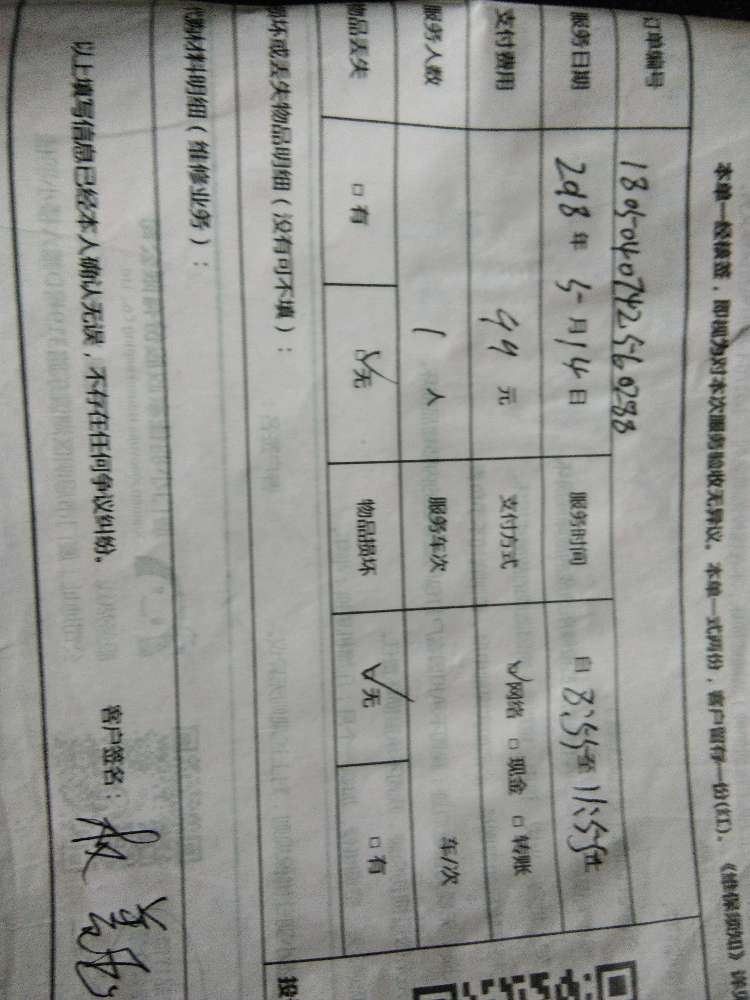 本单一经核签，即视为对本次服务验收无异议。本单一式两份，客户留存一份(红)。《维保须知》
订单编号 1805040742560288
服务日期 2018年5月14日 服务时间 自8:55至11:55止
支付费用 99元 支付方式 ✓网络 □现金 □转账
服务人数 1人 服务车次 车/次
物品丢失 □有 ☑无 物品损坏 ✓无 □有
损坏或丢失物品明细（没有可不填）：
材料明细（维修业务）：
以上填写信息已经本人确认无误，不存在任何争议纠纷。
客户签名：